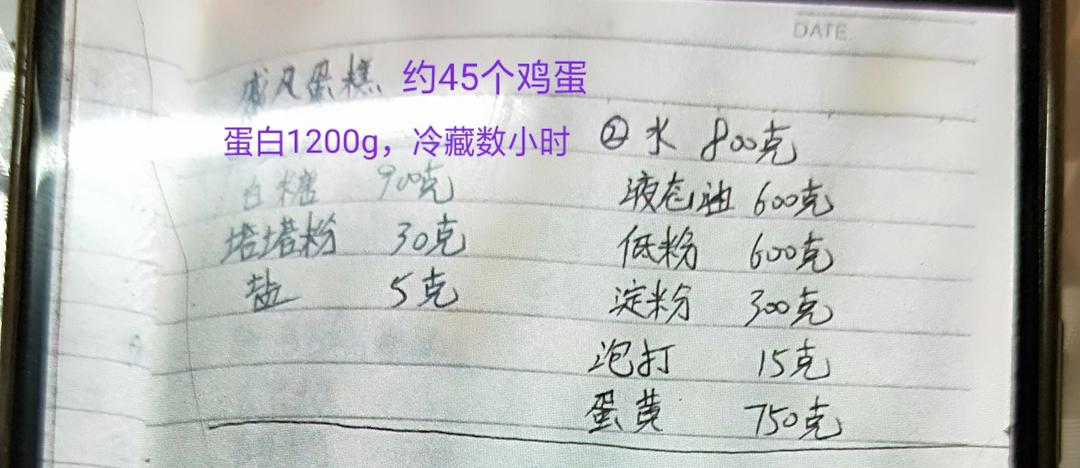 DATE.
戚风蛋糕 约45个鸡蛋
蛋白1200g，冷藏数小时
白糖 900克
塔塔粉 30克
盐 5克
② 水 800克
液态油 600克
低粉 600克
淀粉 300克
泡打 15克
蛋黄 750克